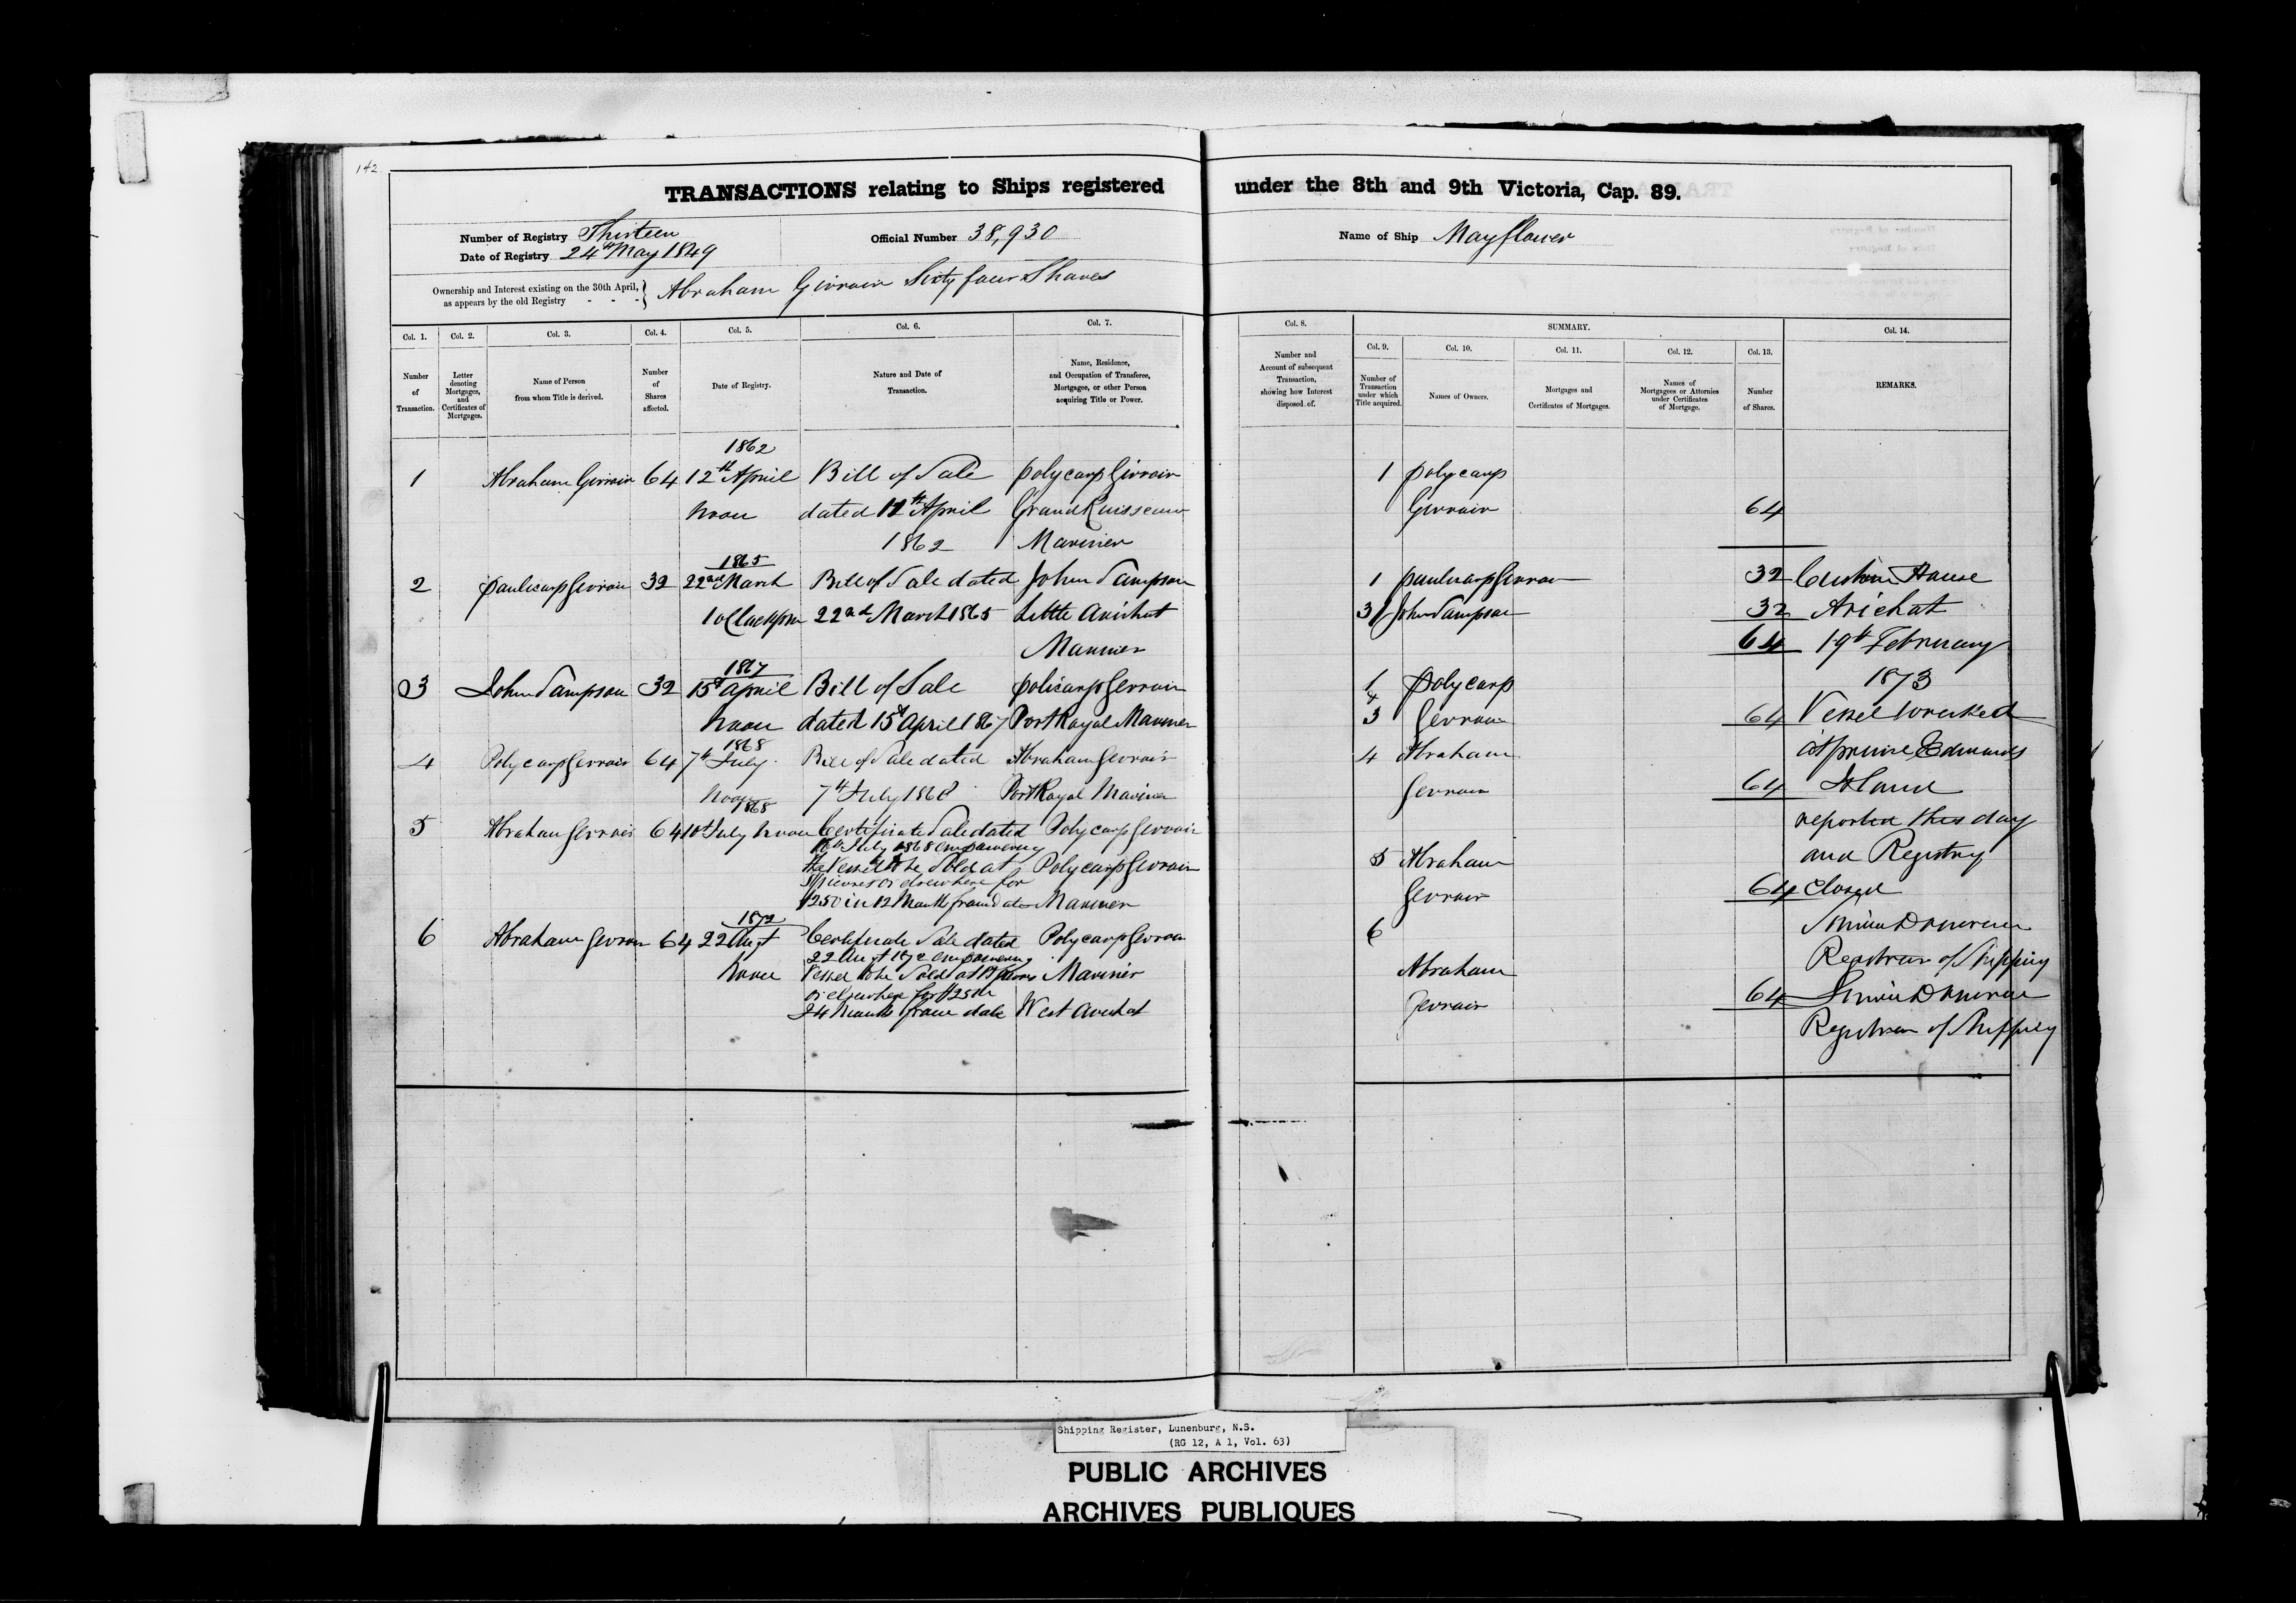 142
TRANSACTIONS relating to Ships registered under the 8th and 9th Victoria, Cap. 89.
Number of Registry Thirteen
Date of Registry 24th May 1849
Official Number 38,930
Name of Ship Mayflower
Ownership and Interest existing on the 30th April, as appears by the old Registry - - - } Abraham Girroir Sixty four Shares
Col. 1. Number of Transaction.
Col. 2. Letter denoting Mortgages, and Certificates of Mortgages.
Col. 3. Name of Person from whom Title is derived.
Col. 4. Number of Shares affected.
Col. 5. Date of Registry.
Col. 6. Nature and Date of Transaction.
Col. 7. Name, Residence, and Occupation of Transferee, Mortgagee, or other Person acquiring Title or Power.
Col. 8. Number and Account of subsequent Transaction, showing how Interest disposed of.
SUMMARY.
Col. 9. Number of Transaction under which Title acquired.
Col. 10. Names of Owners.
Col. 11. Mortgages and Certificates of Mortgages.
Col. 12. Names of Mortgagees or Attornies under Certificates of Mortgage.
Col. 13. Number of Shares.
Col. 14. REMARKS.
1862
1 Abraham Girroir 64 12th April Bill of Sale Polycarp Girroir
noon dated 12th April Grand Ruisseau
1862 Mariner
1865
2 Paulicarp Gerroir 32 22nd March Bill of Sale dated John Sampson
1 oClock pm 22nd March 1865 Little Arichat
Mariner
1867
3 John Sampson 32 15th April Bill of Sale Policarp Gerroir
noon dated 15th April 1867 Port Royal Mariner
1868
4 Polycarp Gerroir 64 7th July Bill of Sale dated Abraham Gerroir
noon 7th July 1868 Port Royal Mariner
1868
5 Abraham Gerroir 64 10th July noon Certificate Sale dated Polycarp Gerroir
10th July 1868 empowering
the Vessel to be Sold at Polycarp Gerroir
St Pierres or elsewhere for
$250 in 12 Month from date Mariner
1872
6 Abraham Gerroir 64 22 Augt Certificate Sale dated Polycarp Gerroir
22 Augt 1872 empowering
noon Vessel to be Sold at St Pierres Mariner
or elsewhere for
24 Months from date West Arichat
1 Polycarp
Girroir 64
1 Paulicarp Gerroir 32
3 John Sampson 32
64
1 Polycarp
&
3 Gerroir 64
4 Abraham
Gerroir 64
5 Abraham
Gerroir 64
6
Abraham
Gerroir 64
Custom House
Arichat
19th February
1873
Vessel wrecked
at Prince Edwards
Island
reported this day
and Registry
closed
Registrar of Shipping
Registrar of Shipping
Shipping Register, Lunenburg, N.S.
(RG 12, A 1, Vol. 63)
PUBLIC ARCHIVES
ARCHIVES PUBLIQUES